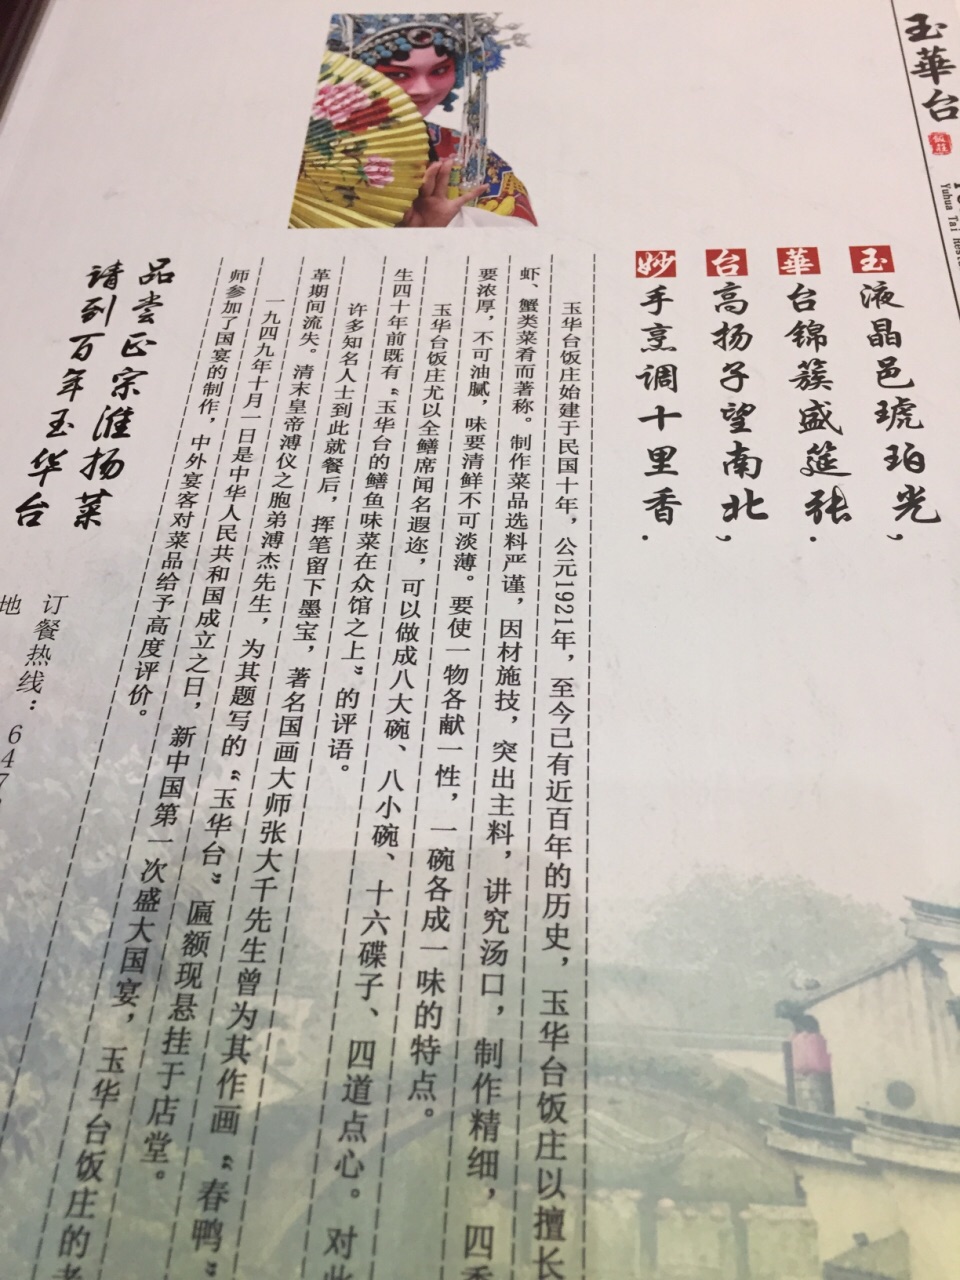 玉華台
Yuhua Tai
玉液晶邑琥珀光,
華台锦簇盛筵张.
台高扬子望南北,
妙手烹调十里香.
玉华台饭庄始建于民国十年，公元1921年，至今已有近百年的历史，玉华台饭庄以擅长
虾、蟹类菜肴而著称。制作菜品选料严谨，因材施技，突出主料，讲究汤口，制作精细，四季
要浓厚，不可油腻，味要清鲜不可淡薄。要使一物各献一性，一碗各成一味的特点。
玉华台饭庄尤以全鳝席闻名遐迩，可以做成八大碗、八小碗、十六碟子、四道点心。对此
生四十年前既有“玉华台的鳝鱼味菜在众馆之上”的评语。
许多知名人士到此就餐后，挥笔留下墨宝，著名国画大师张大千先生曾为其作画“春鸭”
革期间流失。清末皇帝溥仪之胞弟溥杰先生，为其题写的“玉华台”匾额现悬挂于店堂。
一九四九年十月一日是中华人民共和国成立之日，新中国第一次盛大国宴，玉华台饭庄的
师参加了国宴的制作，中外宴客对菜品给予高度评价。
品尝正宗淮扬菜
请到百年玉华台
订餐热线：647
地